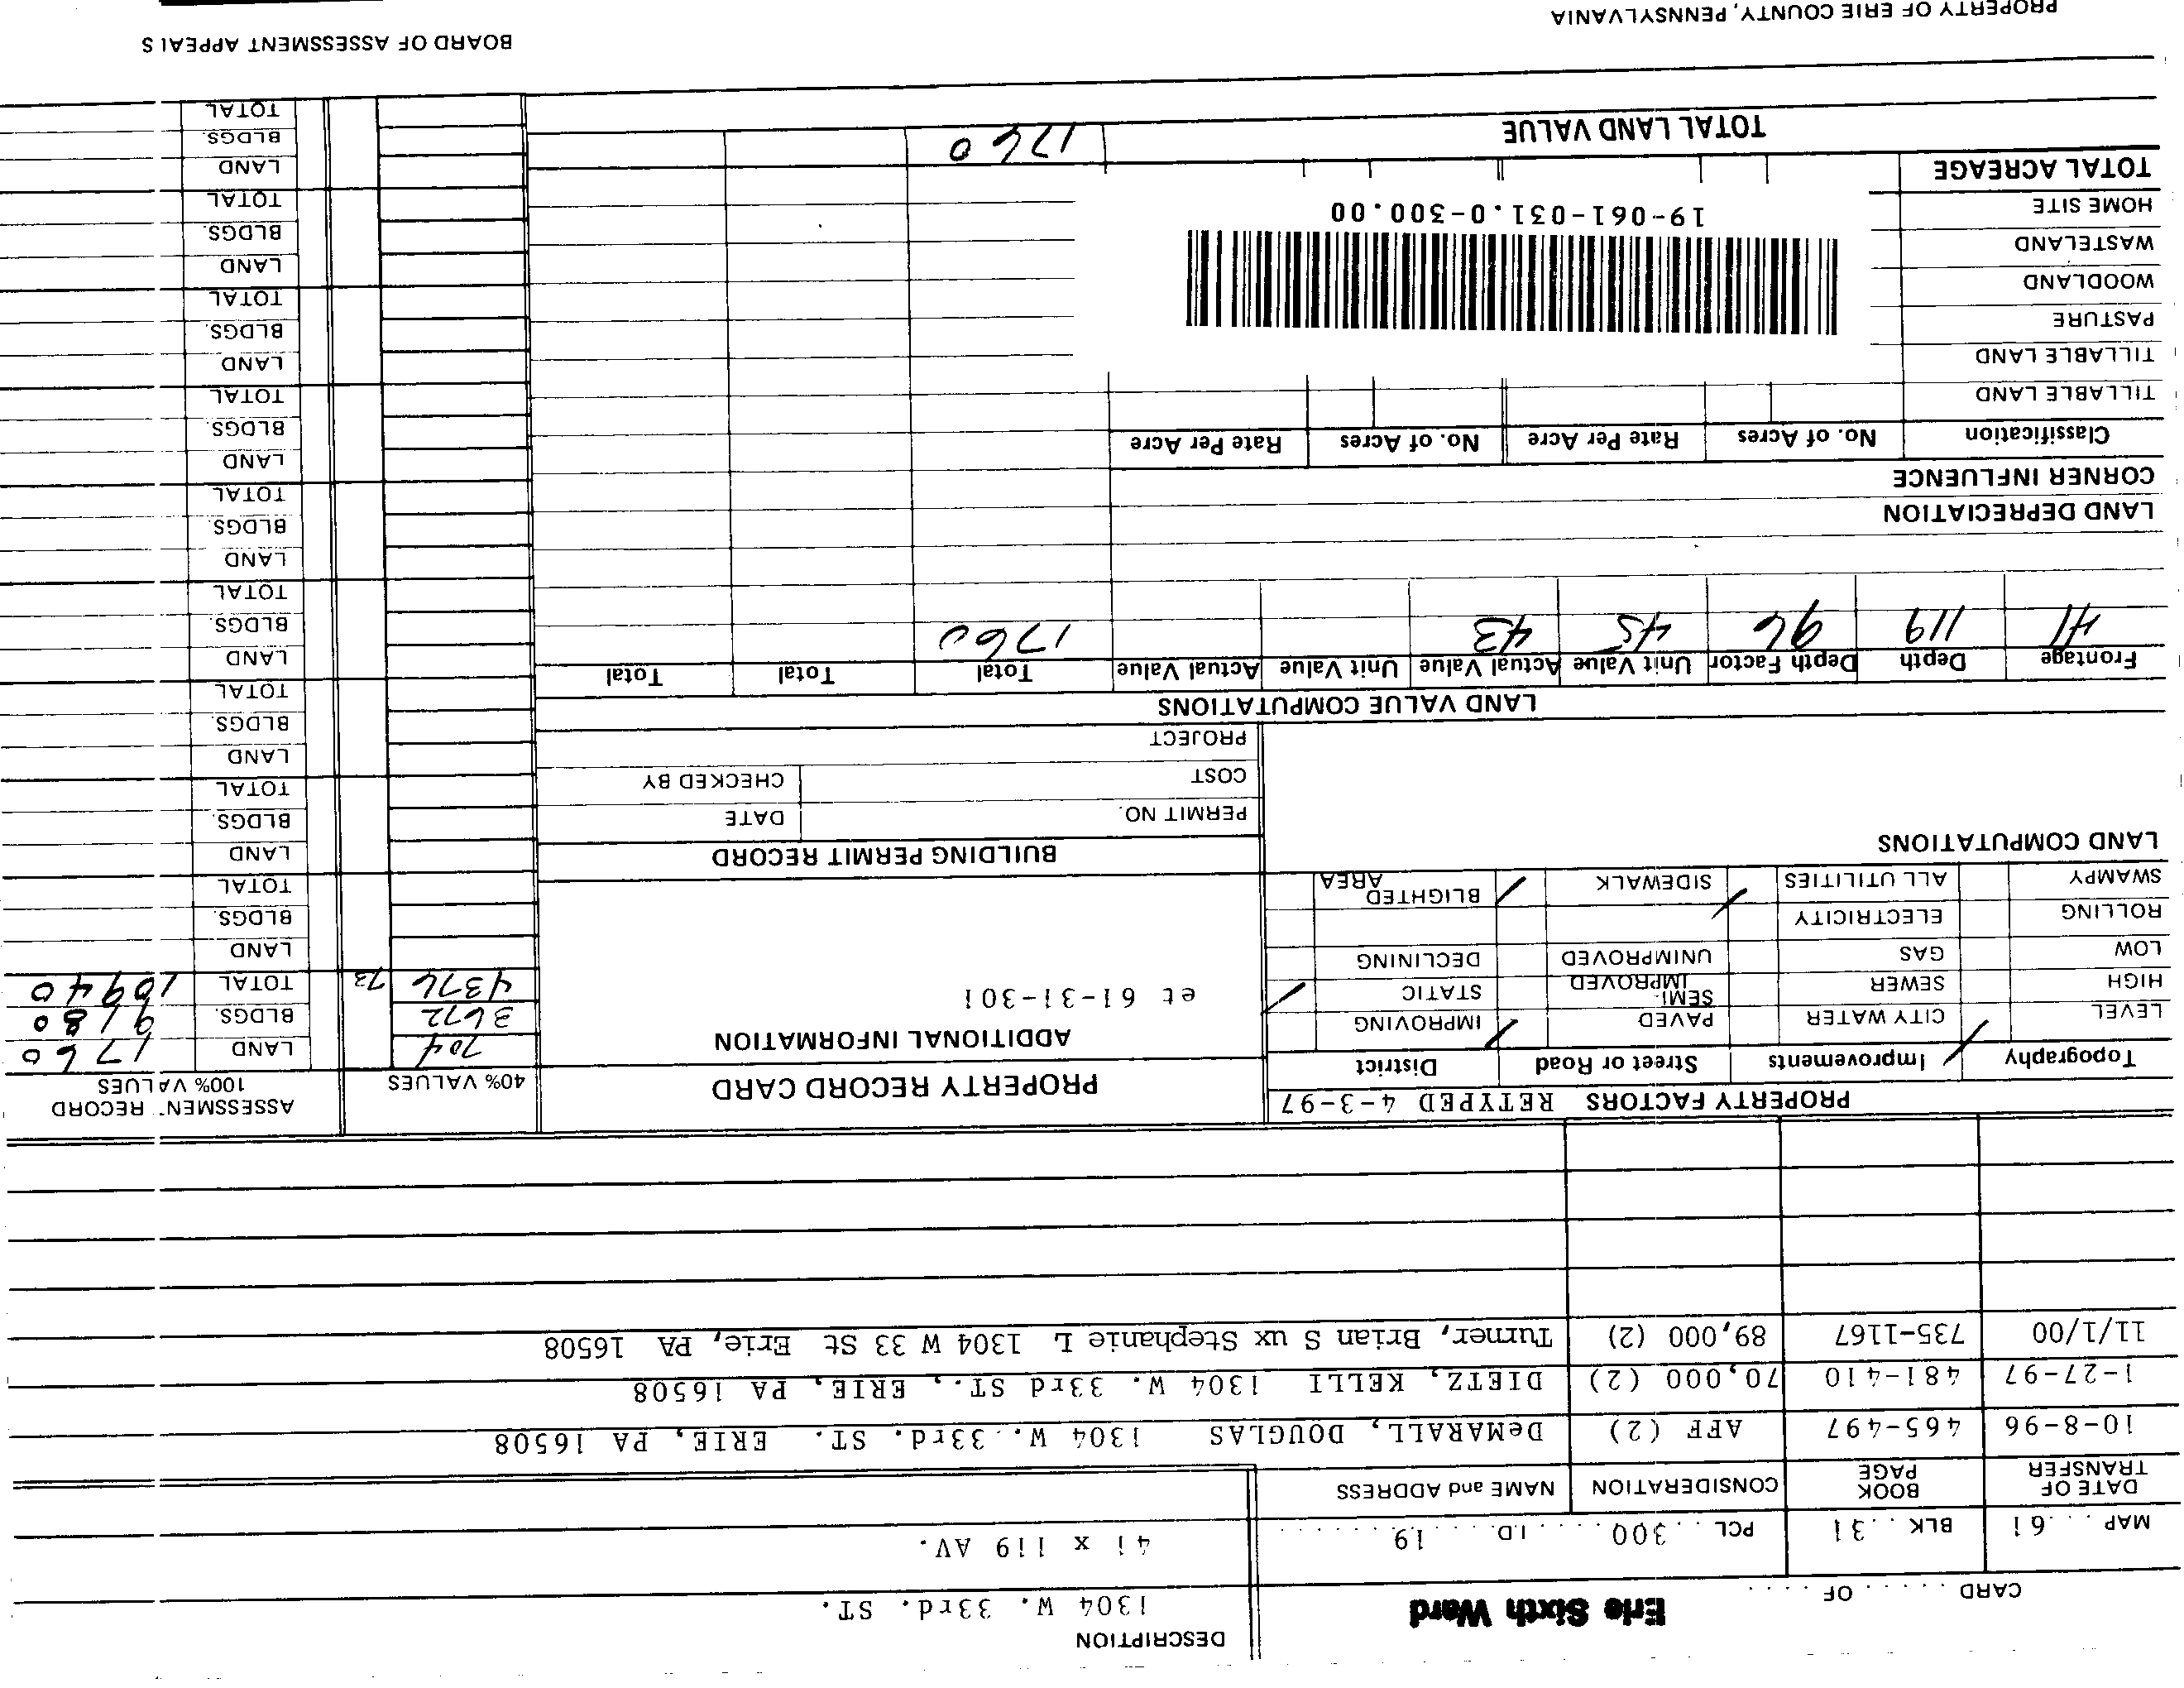 DESCRIPTION
CARD ..... OF .... Erie Sixth Ward 1304 W. 33rd. ST.
MAP ...61 BLK ..31 PCL ..300 ..... I.D. ....19........ 41 x 119 AV.
DATE OF TRANSFER BOOK PAGE CONSIDERATION NAME and ADDRESS
10-8-96 465-497 AFF (2) DeMARALL, DOUGLAS 1304 W. 33rd. ST. ERIE, PA 16508
1-27-97 481-410 70,000 (2) DIETZ, KELLI 1304 W. 33rd ST., ERIE, PA 16508
11/1/00 735-1167 89,000 (2) Turner, Brian S ux Stephanie L 1304 W 33 St Erie, PA 16508
PROPERTY FACTORS RETYPED 4-3-97 PROPERTY RECORD CARD 40% VALUES ASSESSMENT RECORD 100% VALUES
Topography Improvements Street or Road District
LEVEL ✓ CITY WATER PAVED ✓ IMPROVING ADDITIONAL INFORMATION 704 LAND 1760
HIGH SEWER SEMI-IMPROVED STATIC ✓ et 61-31-301 3672 BLDGS. 9180
LOW GAS UNIMPROVED DECLINING 4376 73 TOTAL 10940
ROLLING ELECTRICITY LAND
SWAMPY ALL UTILITIES ✓ SIDEWALK ✓ BLIGHTED AREA BLDGS.
TOTAL
LAND COMPUTATIONS BUILDING PERMIT RECORD LAND
PERMIT NO. DATE BLDGS.
COST CHECKED BY TOTAL
PROJECT LAND
LAND VALUE COMPUTATIONS BLDGS.
TOTAL
Frontage Depth Depth Factor Unit Value Actual Value Unit Value Actual Value Total Total Total LAND
41 119 96 45 43 1760 BLDGS.
TOTAL
LAND
LAND DEPRECIATION BLDGS.
CORNER INFLUENCE TOTAL
Classification No. of Acres Rate Per Acre No. of Acres Rate Per Acre LAND
BLDGS.
TILLABLE LAND TOTAL
TILLABLE LAND LAND
PASTURE BLDGS.
WOODLAND TOTAL
WASTELAND LAND
HOME SITE 19-061-031.0-300.00 BLDGS.
TOTAL
TOTAL ACREAGE LAND
TOTAL LAND VALUE 1760 BLDGS.
TOTAL
PROPERTY OF ERIE COUNTY, PENNSYLVANIA BOARD OF ASSESSMENT APPEALS